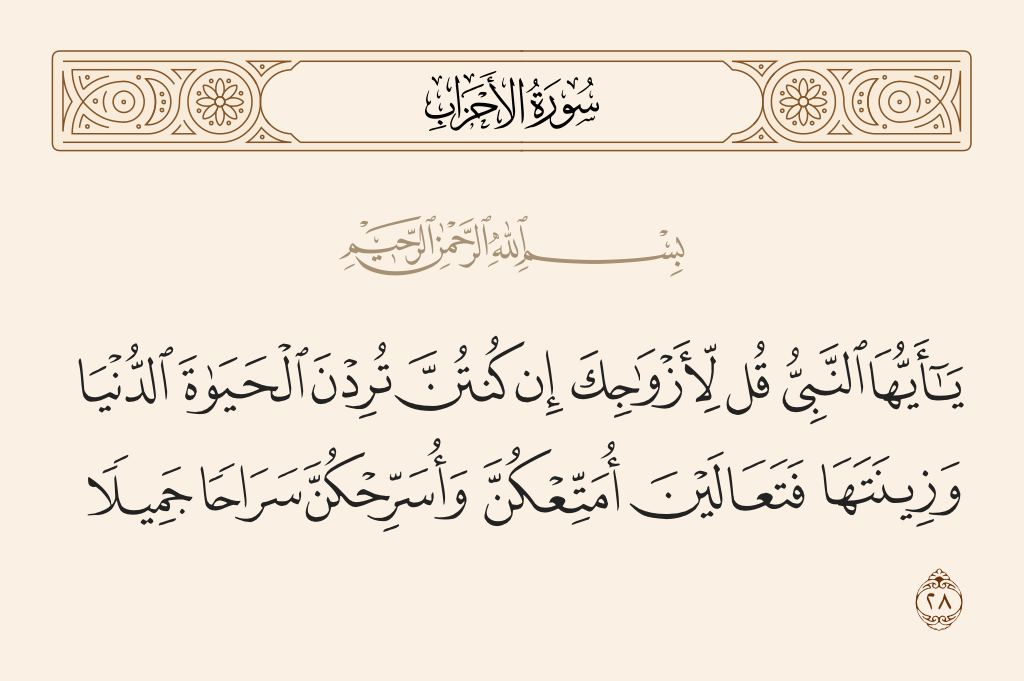 سُورَةُ الأَحْزَابِ
بِسْمِ ٱللَّهِ ٱلرَّحْمَٰنِ ٱلرَّحِيمِ
يَـٰٓأَيُّهَا ٱلنَّبِىُّ قُل لِّأَزْوَٰجِكَ إِن كُنتُنَّ تُرِدْنَ ٱلْحَيَوٰةَ ٱلدُّنْيَا
وَزِينَتَهَا فَتَعَالَيْنَ أُمَتِّعْكُنَّ وَأُسَرِّحْكُنَّ سَرَاحًا جَمِيلًا
٢٨